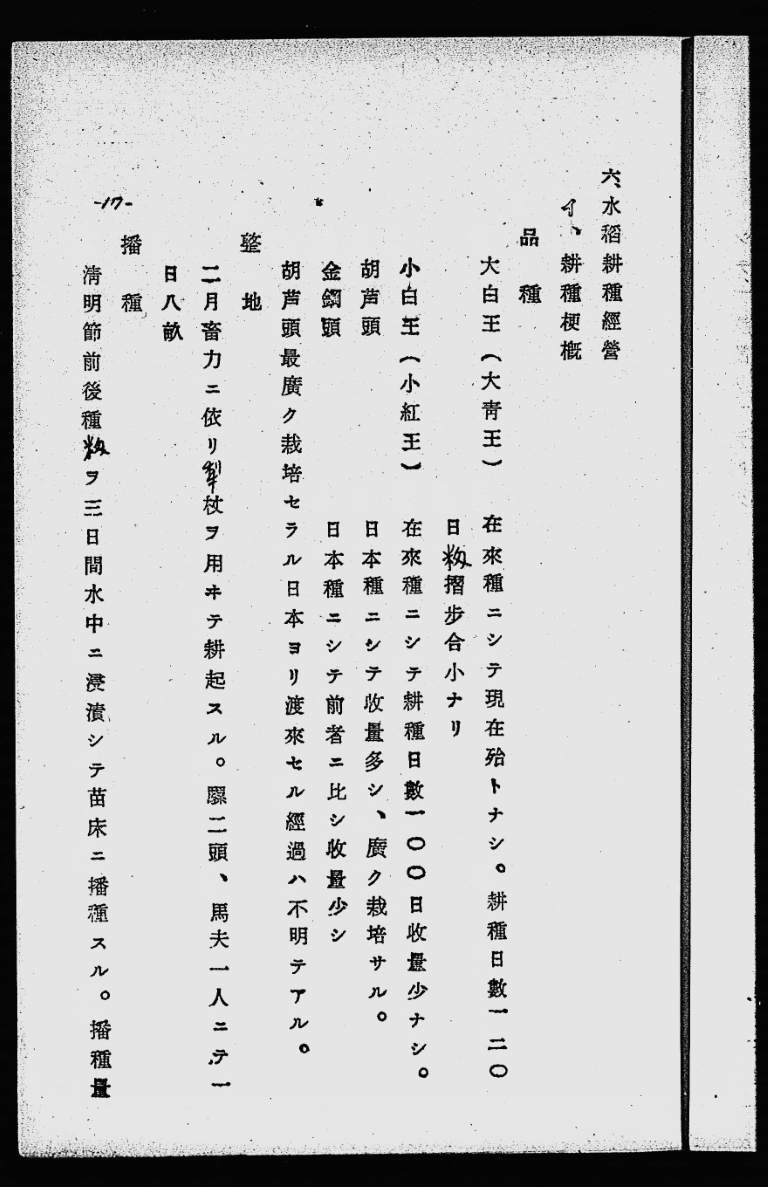 六、水稻耕種經營
イ、耕種梗概
品種
大白王（大青王）　在來種ニシテ現在殆トナシ。耕種日數一二〇
日籾摺步合小ナリ
小白王（小紅王）　在來種ニシテ耕種日數一〇〇日收量少ナシ。
胡芦頭　日本種ニシテ收量多シ、廣ク栽培サル。
金鋼頭　日本種ニシテ前者ニ比シ收量少シ
胡芦頭最廣ク栽培セラル日本ヨリ渡來セル經過ハ不明テアル。
整地
二月畜力ニ依リ犁杖ヲ用ヰテ耕起スル。騾二頭、馬夫一人ニテ一
日八畝
播種
淸明節前後種籾ヲ三日間水中ニ浸漬シテ苗床ニ播種スル。播種量
-17-